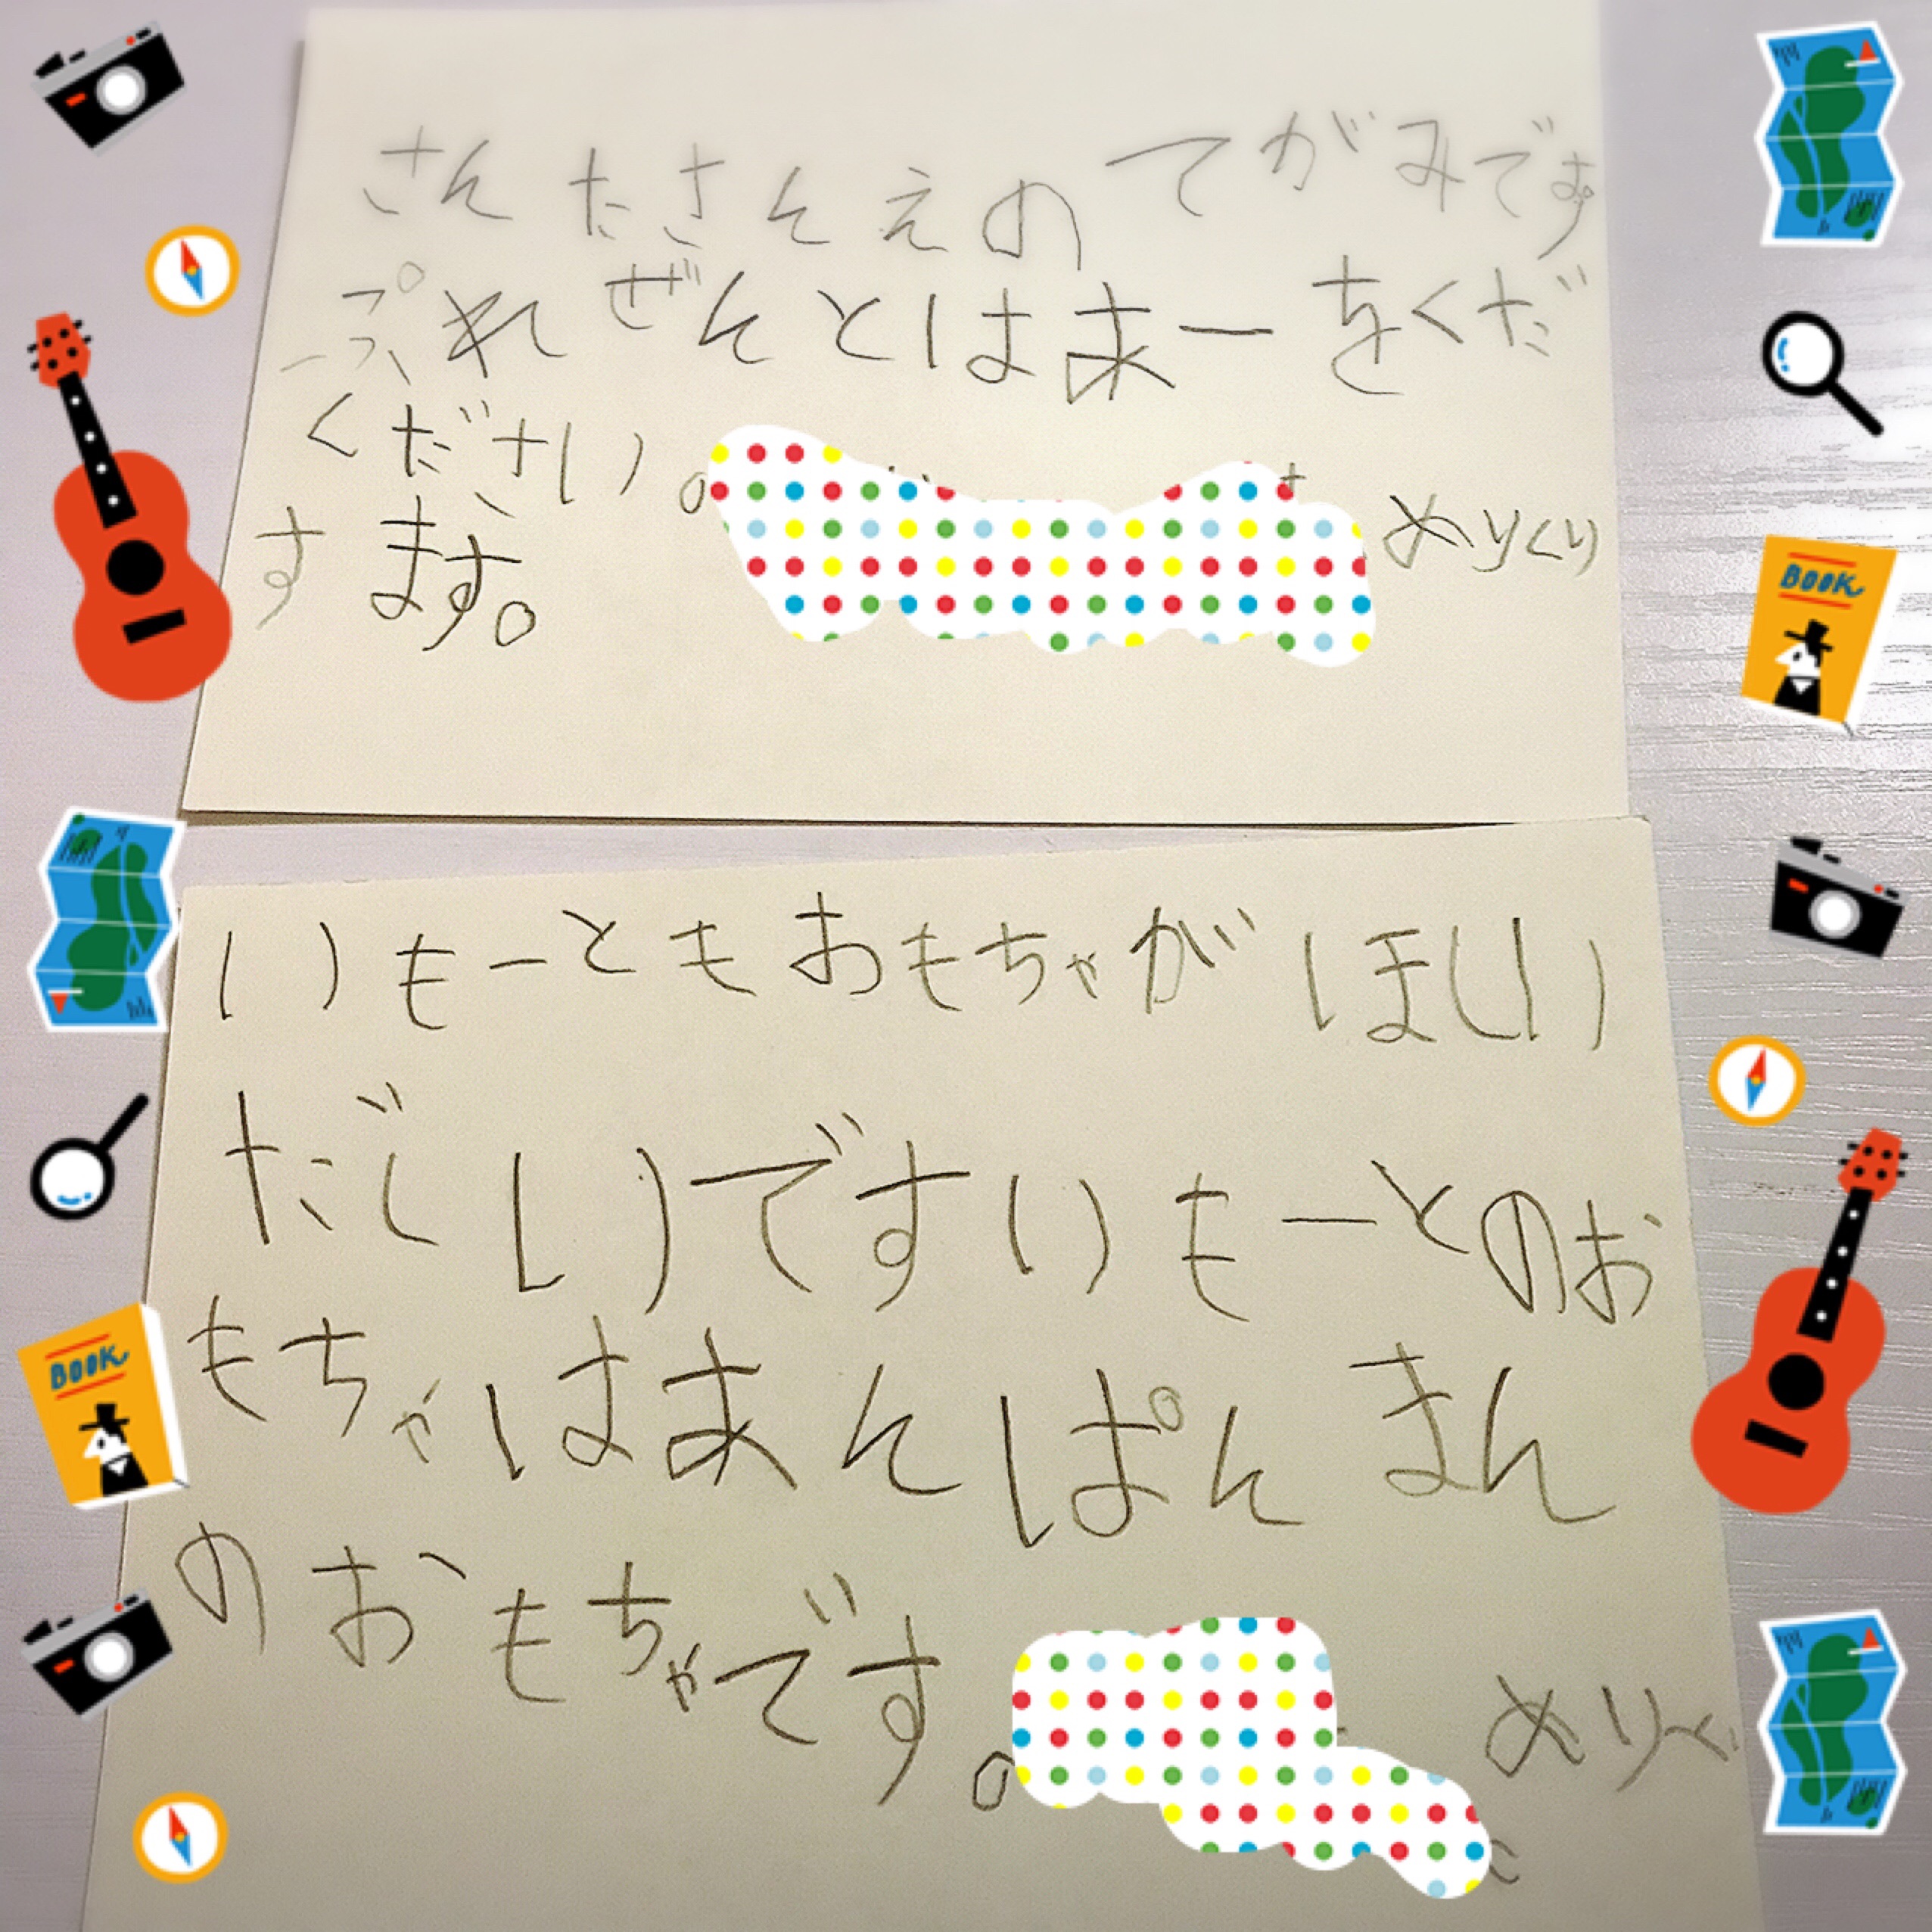 さんたさんえのてがみです
ぷれぜんとはあーをくだ
ください。 めりくり
すます。
いもーともおもちゃがほしい
だしいですいもーとのお
もちゃはあんぱんまん
のおもちゃです。 めりく
BOOK
BOOK